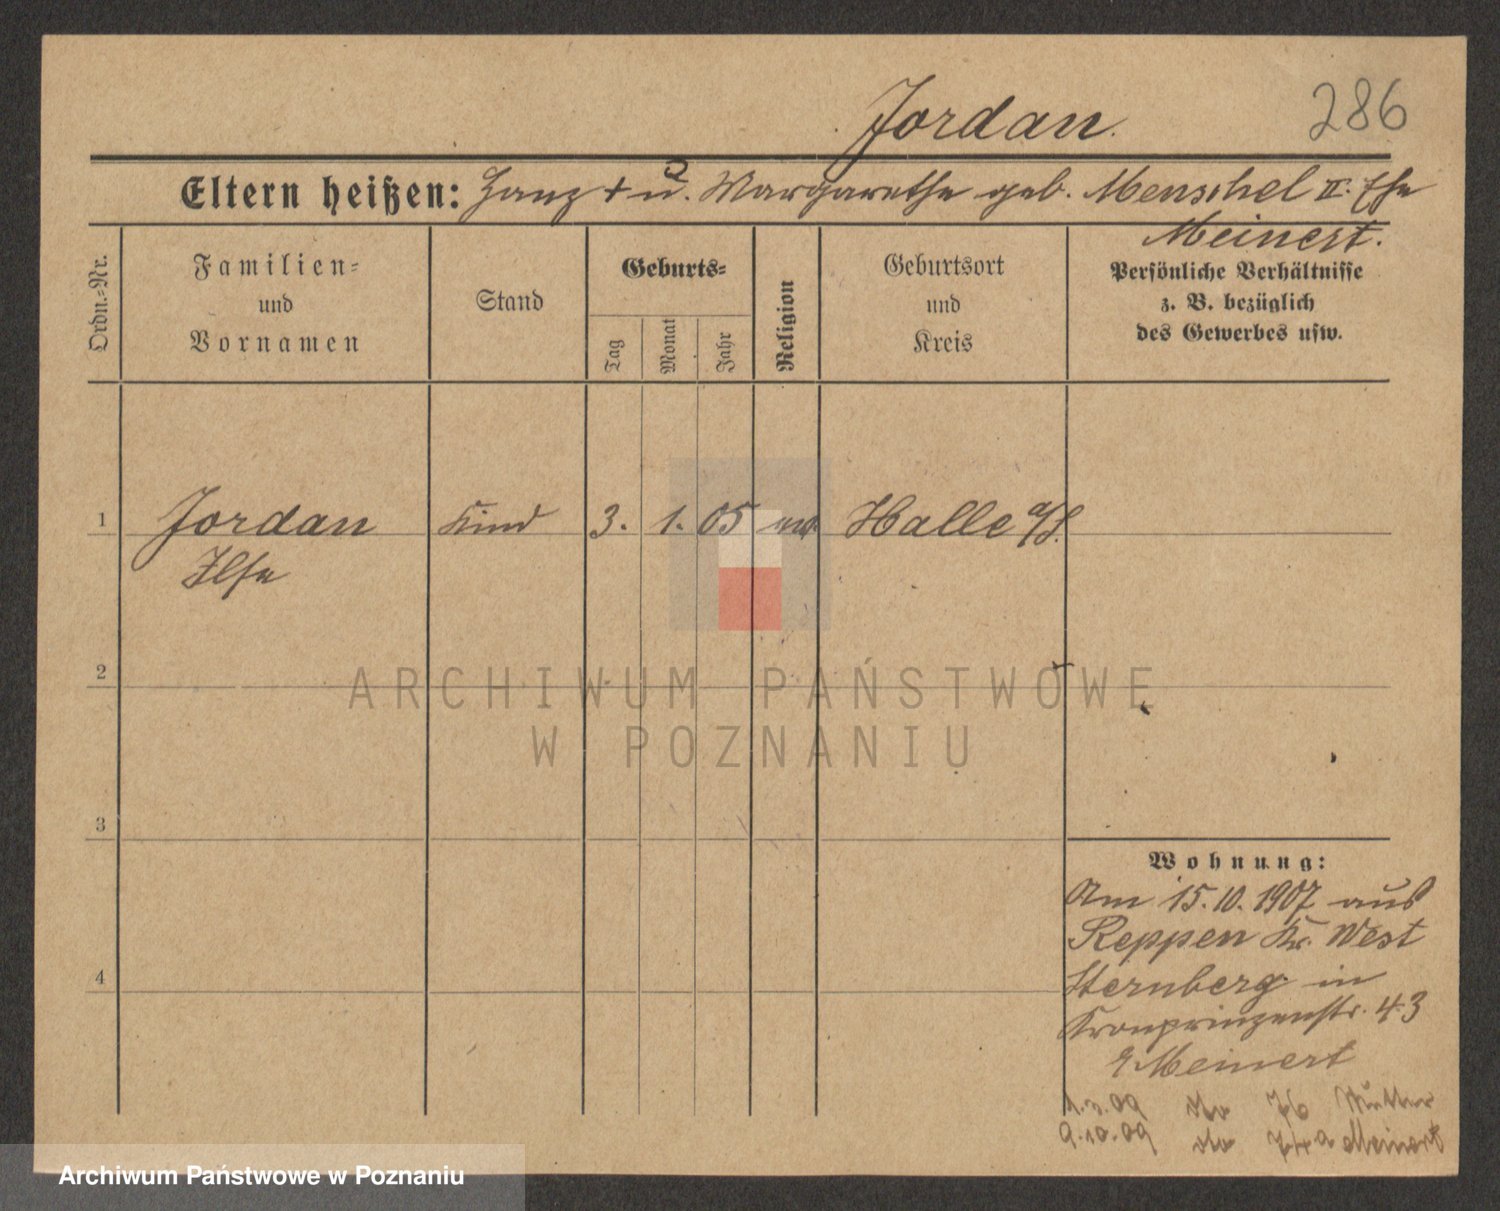 Jordan.
286
Eltern heißen: Hanz + u. Margarethe geb. Menschel II. Ehe
Meinert.
Ordn.-Nr.
Familien-
und
Vornamen
Stand
Geburts-
Tag
Monat
Jahr
Religion
Geburtsort
und
Kreis
Persönliche Verhältnisse
z. B. bezüglich
des Gewerbes usw.
1 Jordan Kind 3. 1. 05 Halle a/S.
Ilse
2
3
4
Wohnung:
Am 15.10.1907 aus
Reppen Kr. West
Sternberg in
Kronprinzenstr. 43
Meinert
1.3.09 do 76 Mutter
9.10.09 do 74a Meinert
ARCHIWUM PAŃSTWOWE
W POZNANIU
Archiwum Państwowe w Poznaniu